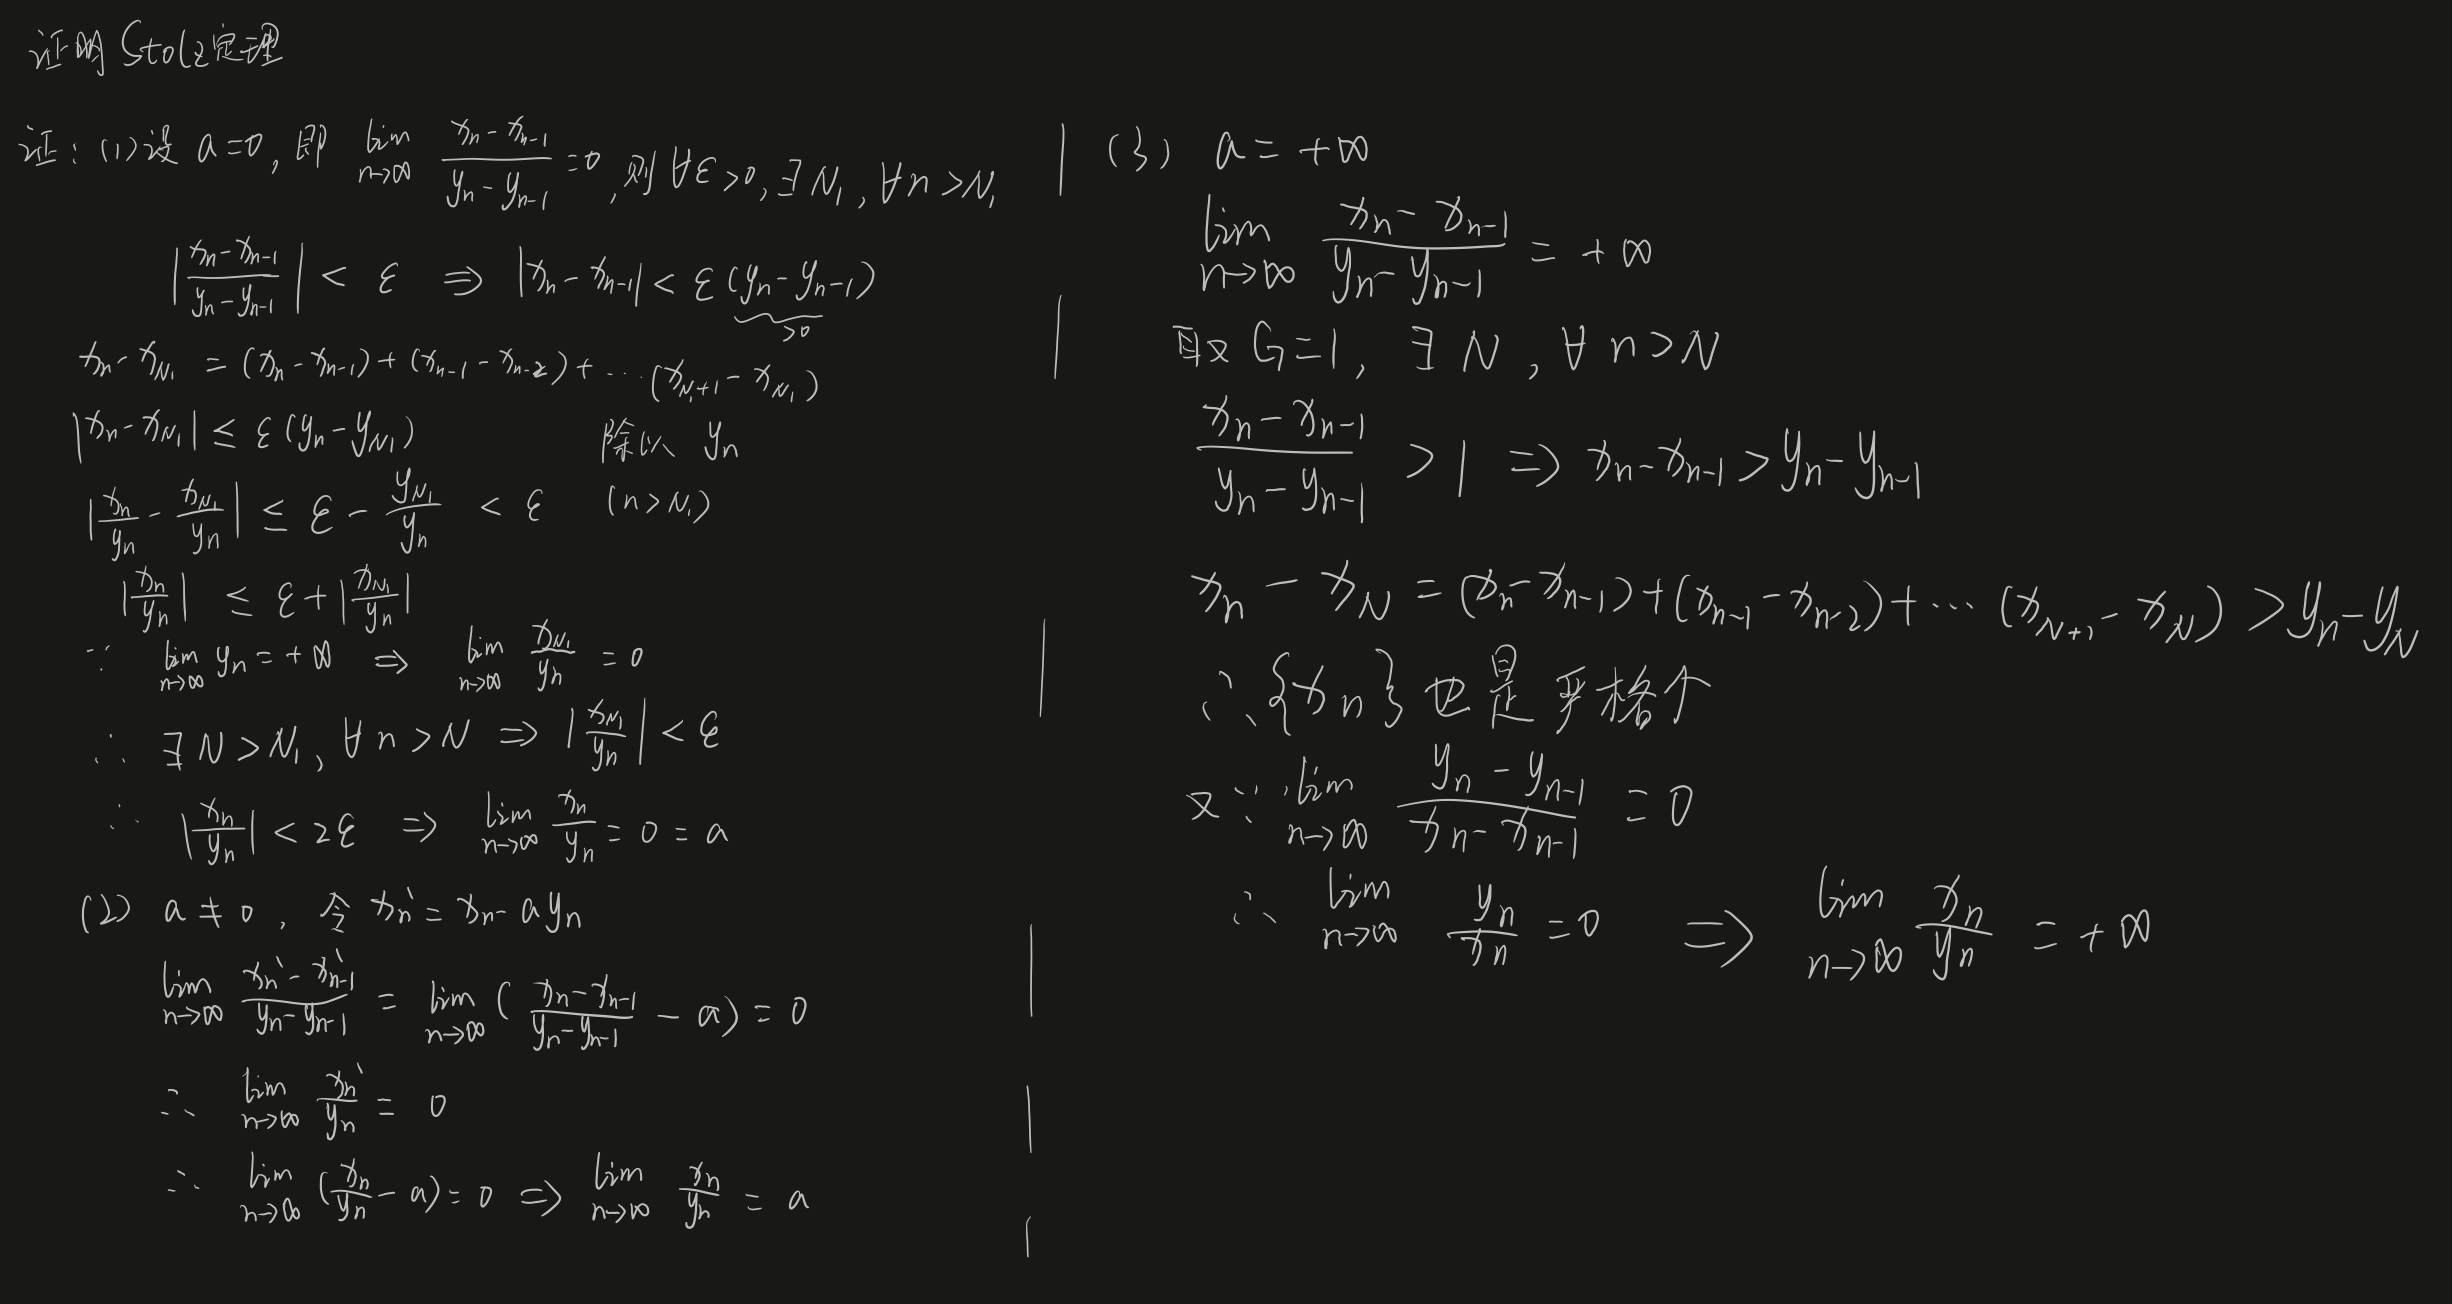 证明Stolz定理
证：(1)设 a=0, 即 lim_{n→∞} (x_n - x_{n-1})/(y_n - y_{n-1}) = 0, 则 ∀ε>0, ∃N_1, ∀n>N_1
|(x_n - x_{n-1})/(y_n - y_{n-1})| < ε ⇒ |x_n - x_{n-1}| < ε(y_n - y_{n-1})
>0
x_n - x_{N_1} = (x_n - x_{n-1}) + (x_{n-1} - x_{n-2}) + ⋯ (x_{N_1+1} - x_{N_1})
|x_n - x_{N_1}| ≤ ε(y_n - y_{N_1}) 除以 y_n
|x_n/y_n - x_{N_1}/y_n| ≤ ε - y_{N_1}/y_n < ε (n>N_1)
|x_n/y_n| ≤ ε + |x_{N_1}/y_n|
∵ lim_{n→∞} y_n = +∞ ⇒ lim_{n→∞} x_{N_1}/y_n = 0
∴ ∃N>N_1, ∀n>N ⇒ |x_{N_1}/y_n| < ε
∴ |x_n/y_n| < 2ε ⇒ lim_{n→∞} x_n/y_n = 0 = a
(2) a≠0, 令 x_n' = x_n - ay_n
lim_{n→∞} (x_n' - x_{n-1}')/(y_n - y_{n-1}) = lim_{n→∞} ((x_n - x_{n-1})/(y_n - y_{n-1}) - a) = 0
∴ lim_{n→∞} x_n'/y_n = 0
∴ lim_{n→∞} (x_n/y_n - a) = 0 ⇒ lim_{n→∞} x_n/y_n = a
(3) a = +∞
lim_{n→∞} (x_n - x_{n-1})/(y_n - y_{n-1}) = +∞
取 G=1, ∃N, ∀n>N
(x_n - x_{n-1})/(y_n - y_{n-1}) > 1 ⇒ x_n - x_{n-1} > y_n - y_{n-1}
x_n - x_N = (x_n - x_{n-1}) + (x_{n-1} - x_{n-2}) + ⋯ (x_{N+1} - x_N) > y_n - y_N
∴ {x_n} 也是严格↑
又∵ lim_{n→∞} (y_n - y_{n-1})/(x_n - x_{n-1}) = 0
∴ lim_{n→∞} y_n/x_n = 0 ⇒ lim_{n→∞} x_n/y_n = +∞